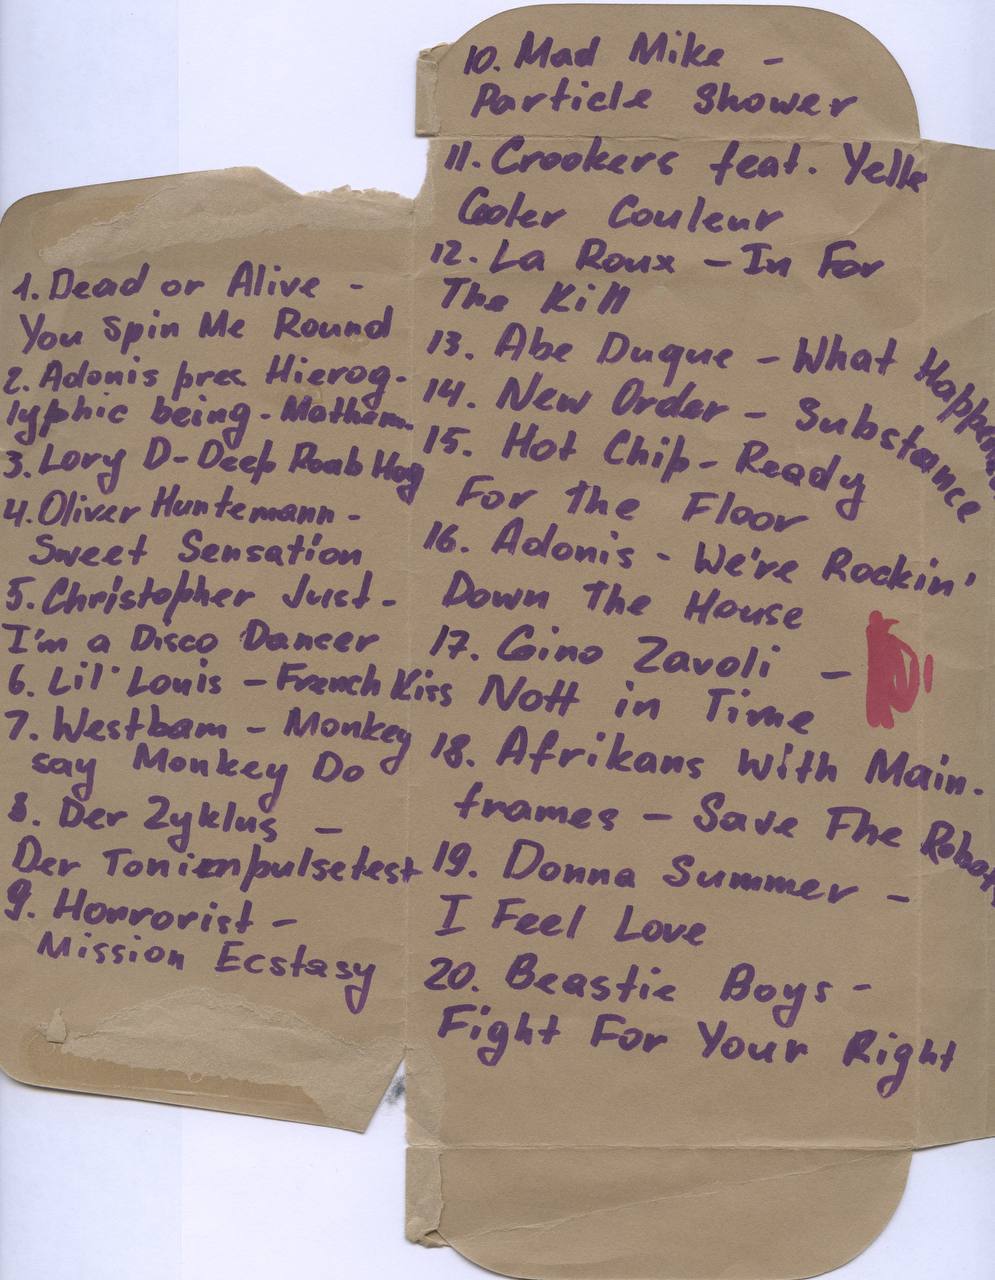 1. Dead or Alive -
You Spin Me Round
2. Adonis pres. Hierog-
lyphic being - Mathem.
3. Lory D - Deep Roab Hog
4. Oliver Huntemann -
Sweet Sensation
5. Christopher Just -
I'm a Disco Dancer
6. Lil' Louis - French Kiss
7. Westbam - Monkey
say Monkey Do
8. Der Zyklus -
Der Tonimpulsetest
9. Horrorist -
Mission Ecstasy
10. Mad Mike -
Particle Shower
11. Crookers feat. Yelle
Cooler Couleur
12. La Roux - In For
The Kill
13. Abe Duque - What Happened
14. New Order - Substance
15. Hot Chip - Ready
For The Floor
16. Adonis - We're Rockin'
Down The House
17. Gino Zavoli -
Nott in Time
18. Afrikans With Main-
frames - Save The Robots
19. Donna Summer -
I Feel Love
20. Beastie Boys -
Fight For Your Right